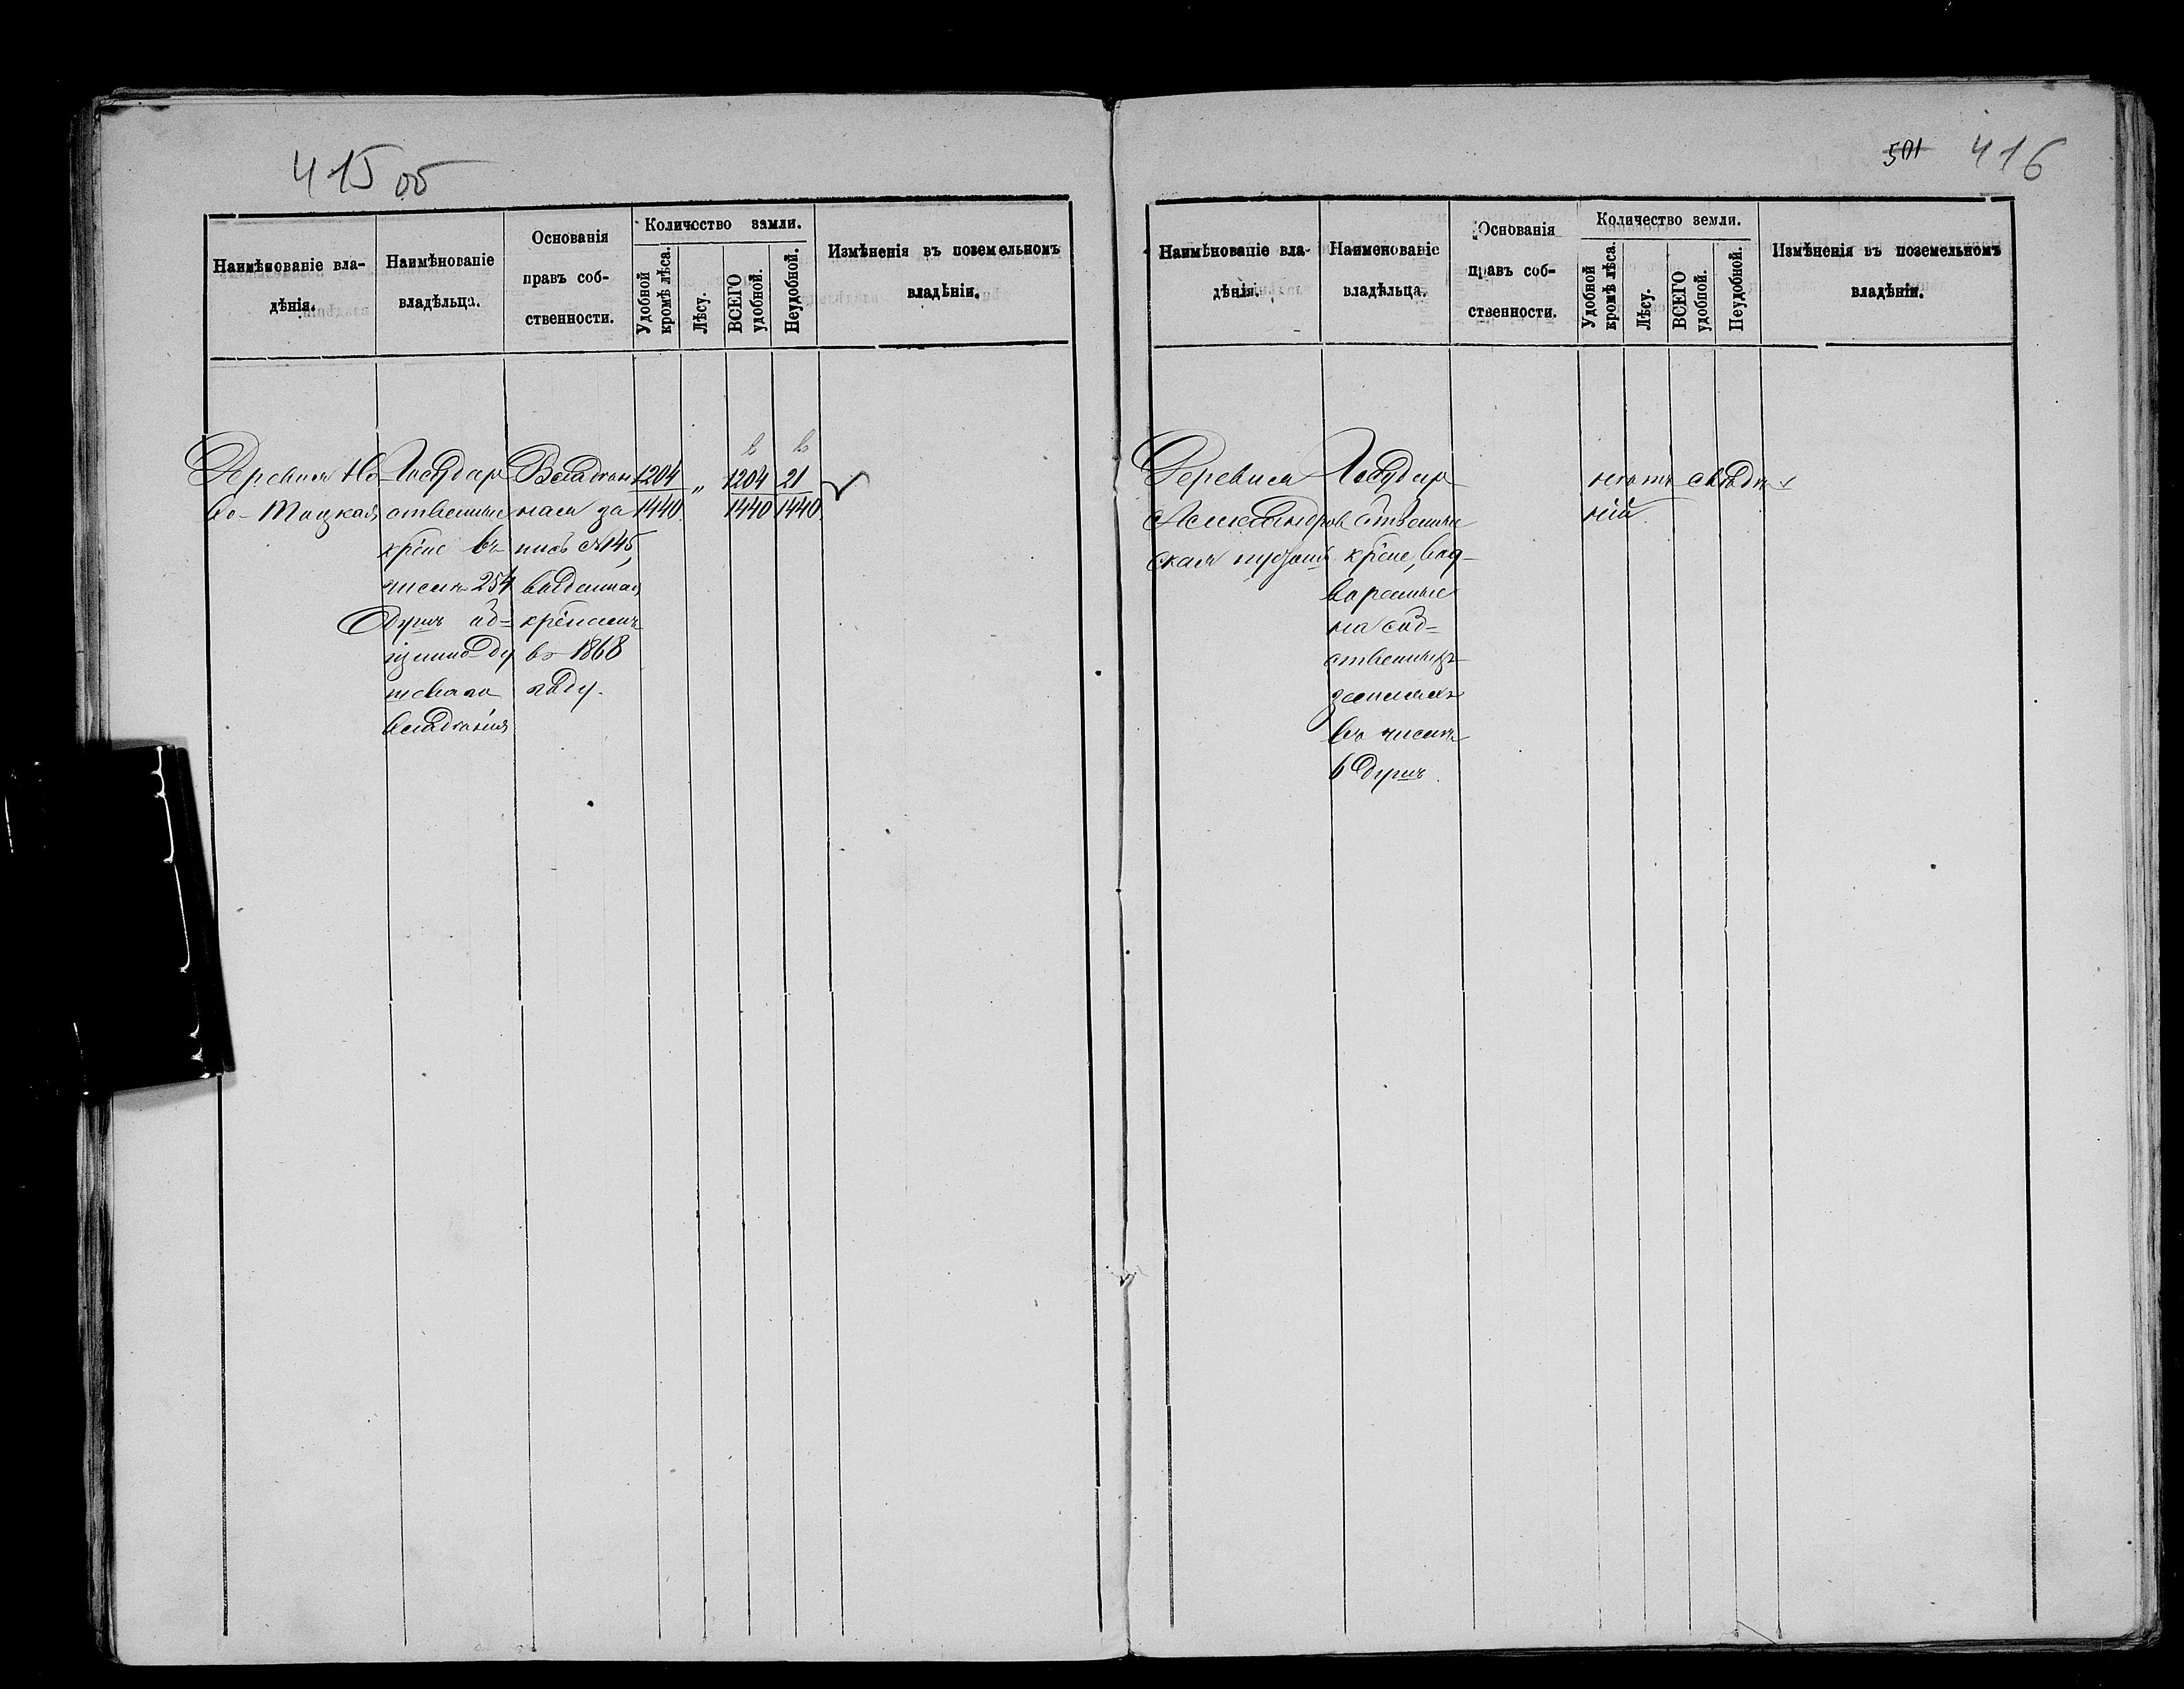 415 об
Наимѣнованіе вла-
дѣнія.
Наимѣнованіе
владѣльца.
Основанія
правъ соб-
ственности.
Количество земли.
Удобной
кромѣ лѣса.
Лѣсу.
ВСЕГО
удобной.
Неудобной.
Измѣненія въ поземельномъ
владѣніи.
Деревня Но-
во-Тацкая
Государ
ственные
кр̃не въ
числѣ 254
душъ об-
щинно Ду
шеваго
владѣнія
Владѣн
ная за
пись №145,
выданная
кр̃намъ
въ 1868
году.
1204
1440
"
1204
1440
21
1440
501 416
Наимѣнованіе вла-
дѣнія.
Наименованіе
владѣльца.
Основанія
правъ соб-
ственности.
Количество земли.
Удобной
кромѣ лѣса.
Лѣсу.
ВСЕГО
удобной.
Неудобной.
Измѣненія въ поземельномъ
владѣніи.
Деревня
Александров
ская
Государ
ственны
кр̃не, вод-
воренные
на соб-
ственныхъ
земляхъ
въ числѣ
6 душъ.
нѣтъ свѣдѣ-
ній.